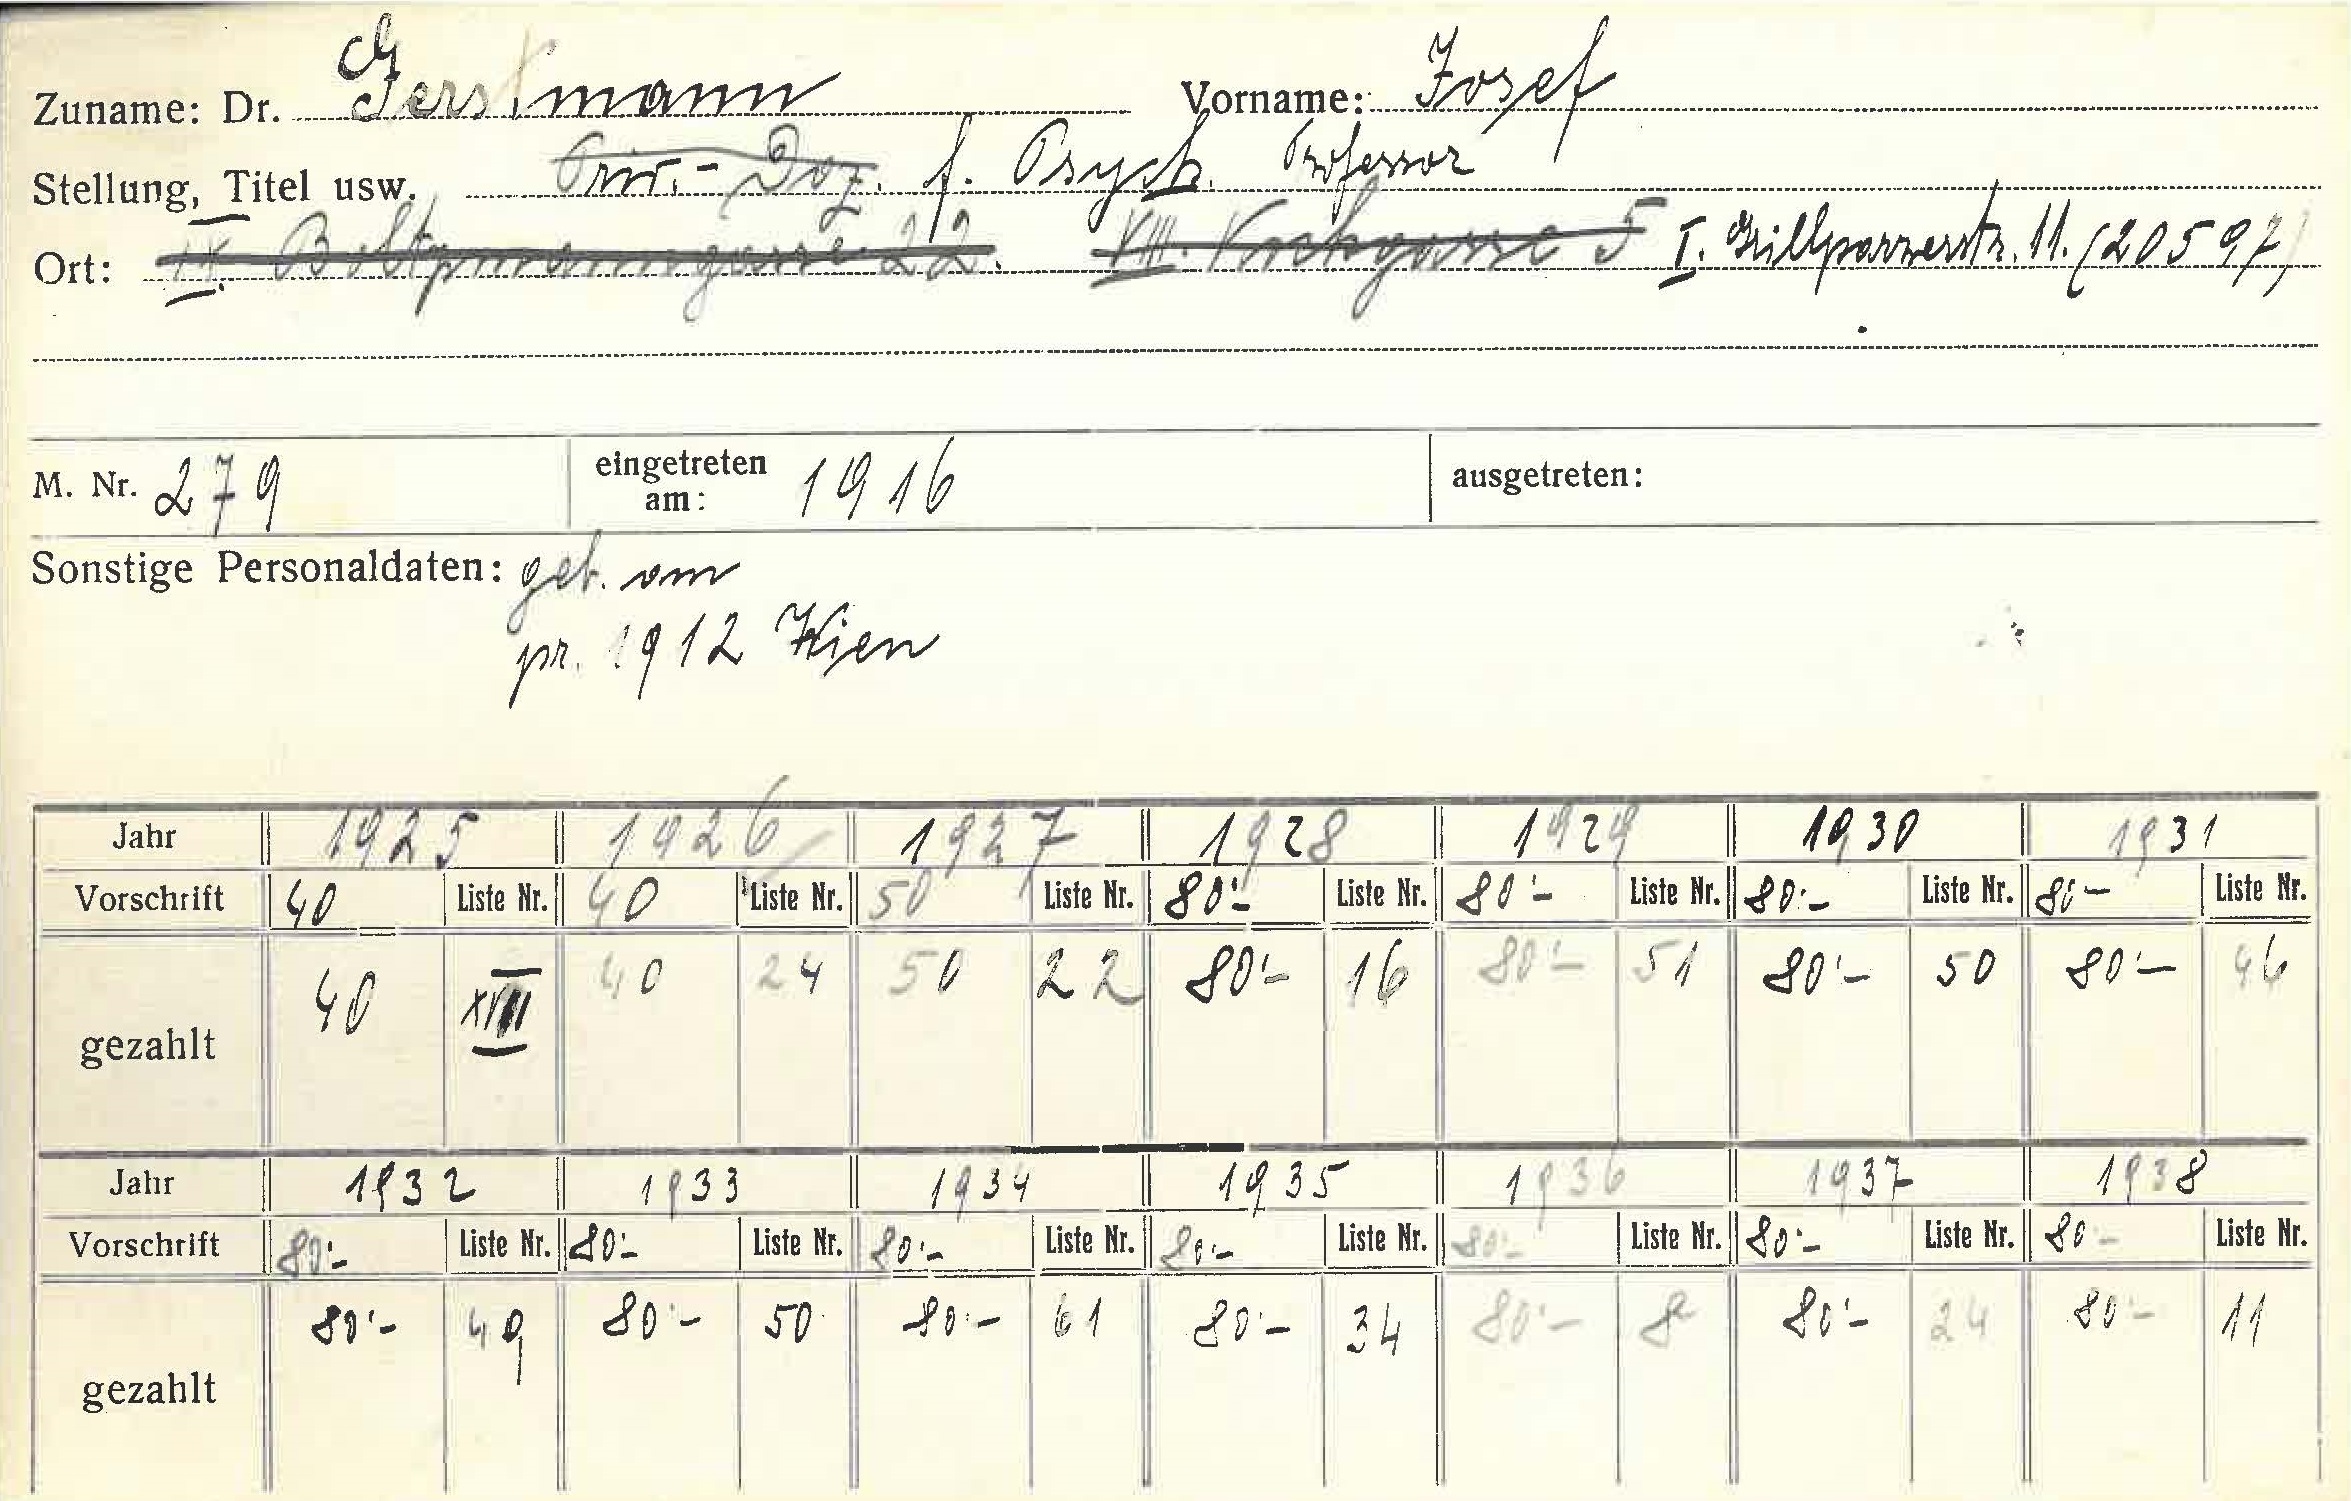 Zuname: Dr. Gerstmann Vorname: Josef
Stellung, Titel usw. Priv.-Doz. f. Psych. Professor
Ort: IX. Boltzmanngasse 22. VIII. Kochgasse 5 I. Grillparzerstr. 11. (20597)
M. Nr. 279 eingetreten am: 1916 ausgetreten:
Sonstige Personaldaten: geb. am
pr. 1912 Wien
Jahr 1925 1926 1927 1928 1929 1930 1931
Vorschrift 40 Liste Nr. 40 Liste Nr. 50 Liste Nr. 80'- Liste Nr. 80'- Liste Nr. 80'- Liste Nr. 80- Liste Nr.
gezahlt 40 XVIII 40 24 50 22 80'- 16 80'- 51 80'- 50 80'- 46
Jahr 1932 1933 1934 1935 1936 1937 1938
Vorschrift 80'- Liste Nr. 80'- Liste Nr. 80'- Liste Nr. 80'- Liste Nr. 80'- Liste Nr. 80'- Liste Nr. 80- Liste Nr.
gezahlt 80'- 49 80'- 50 80'- 61 80'- 34 80'- 8 80'- 24 80'- 11